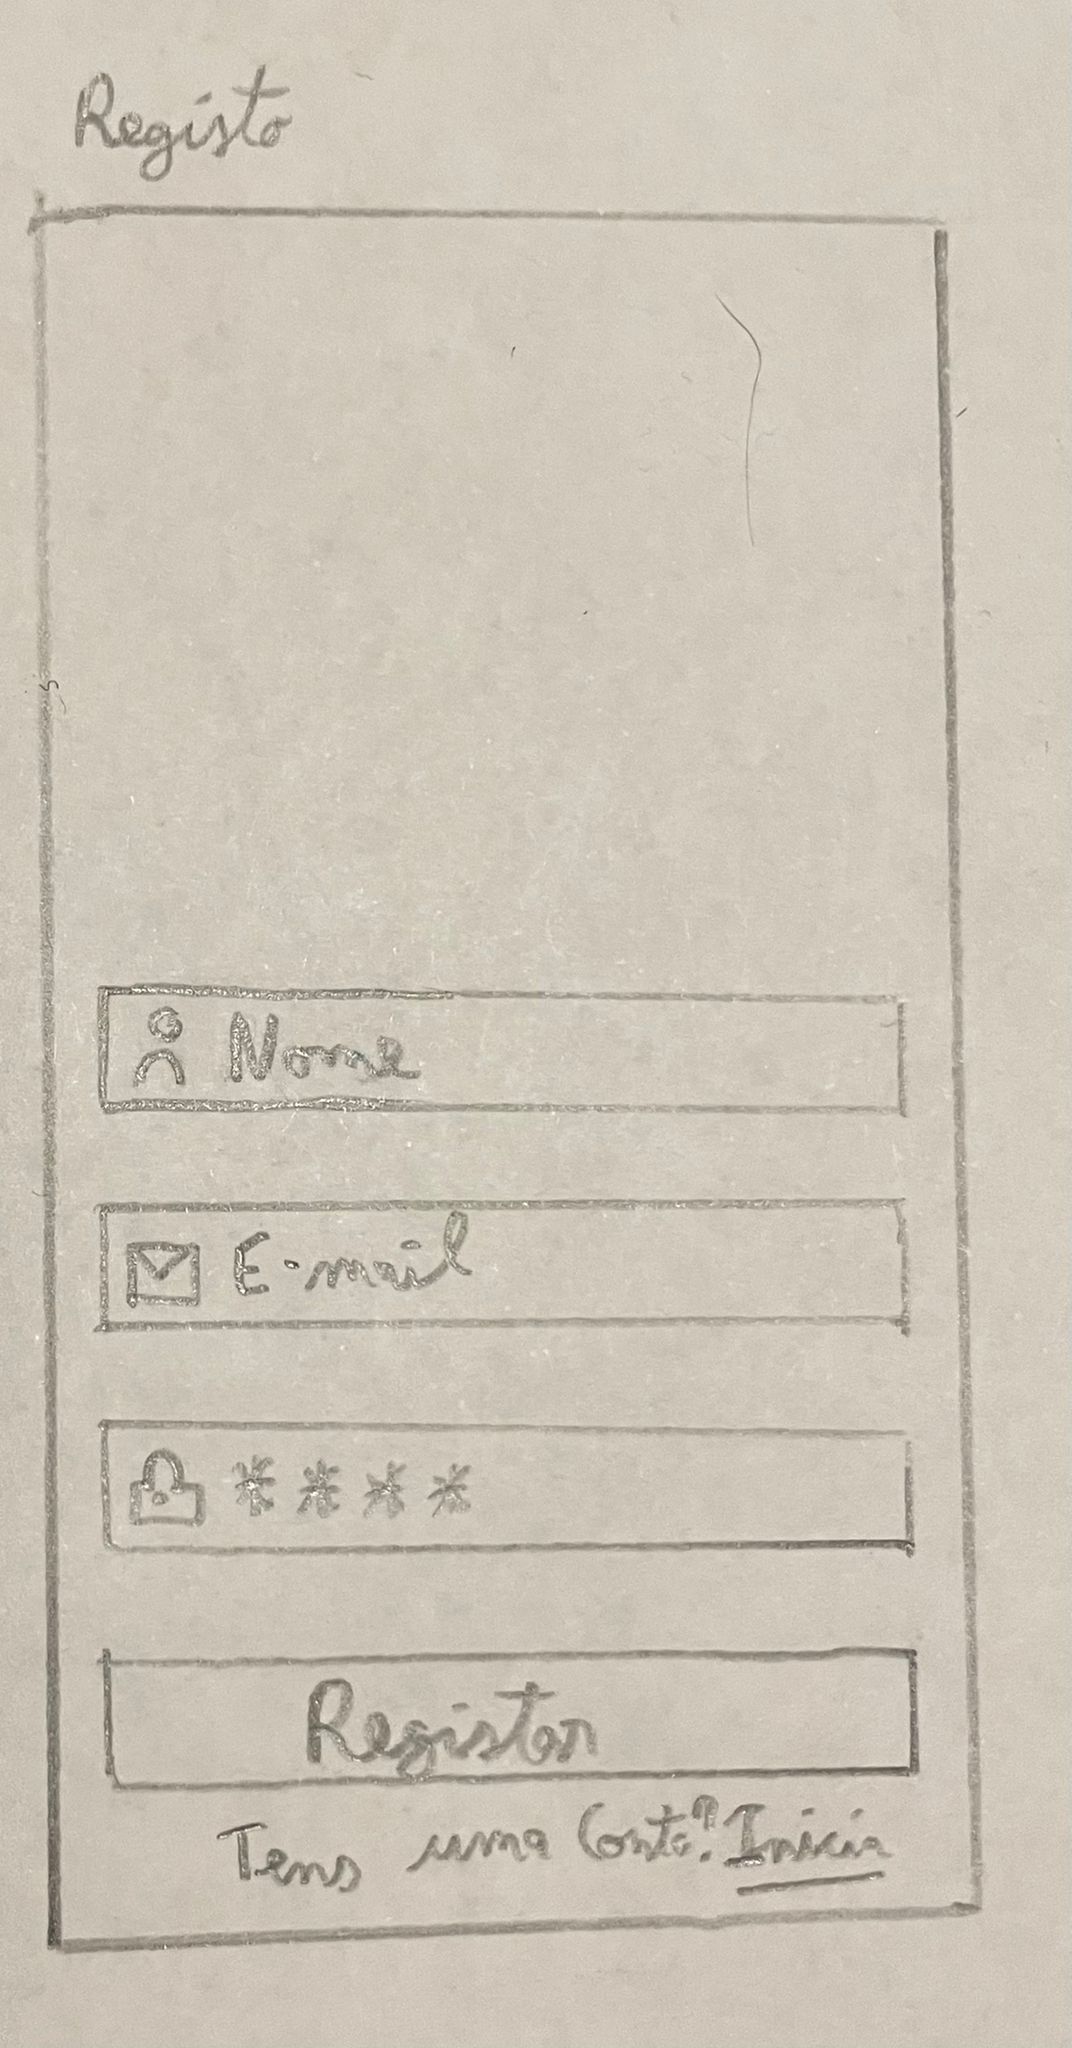 Registo
Nome
E-mail
****
Registar
Tens uma Conta? Inicia